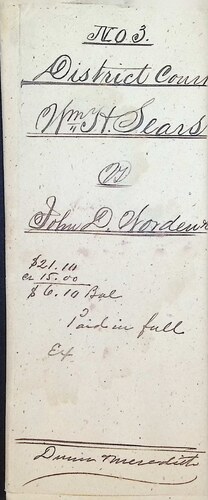 No 3.
District Cour
Wm H. Sears
vs
John D. Norden
$21.10
Cr 15.00
$6.10 Bal
Paid in full
Ex
Dunn & Meredith